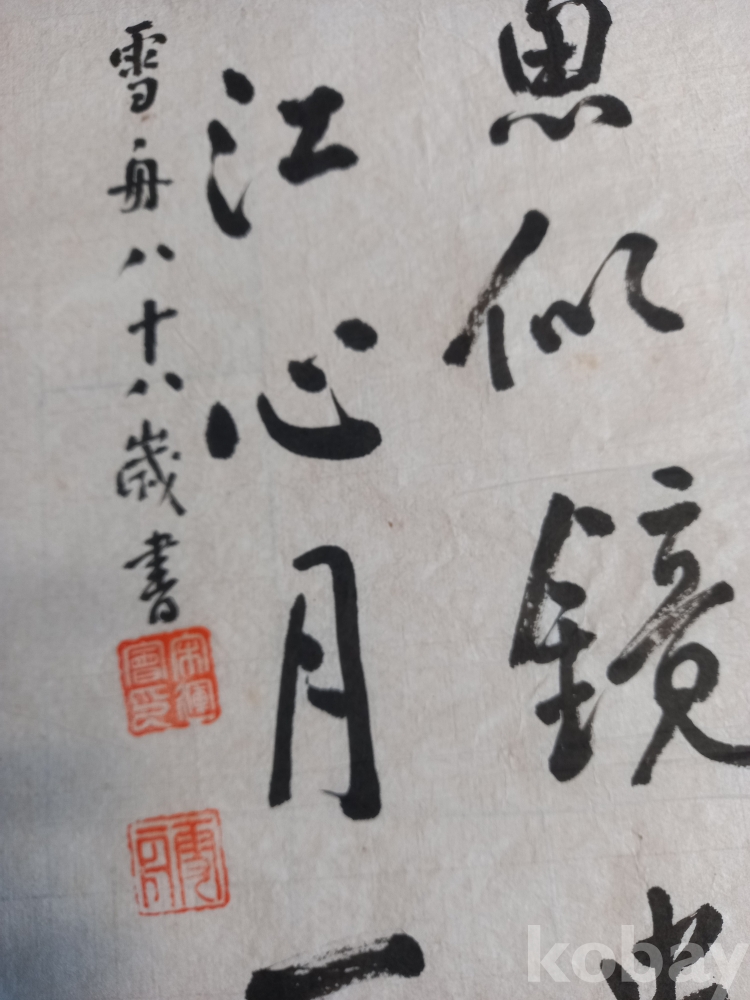 思似鏡
江心月一
雪舟八十八歲書
kobay